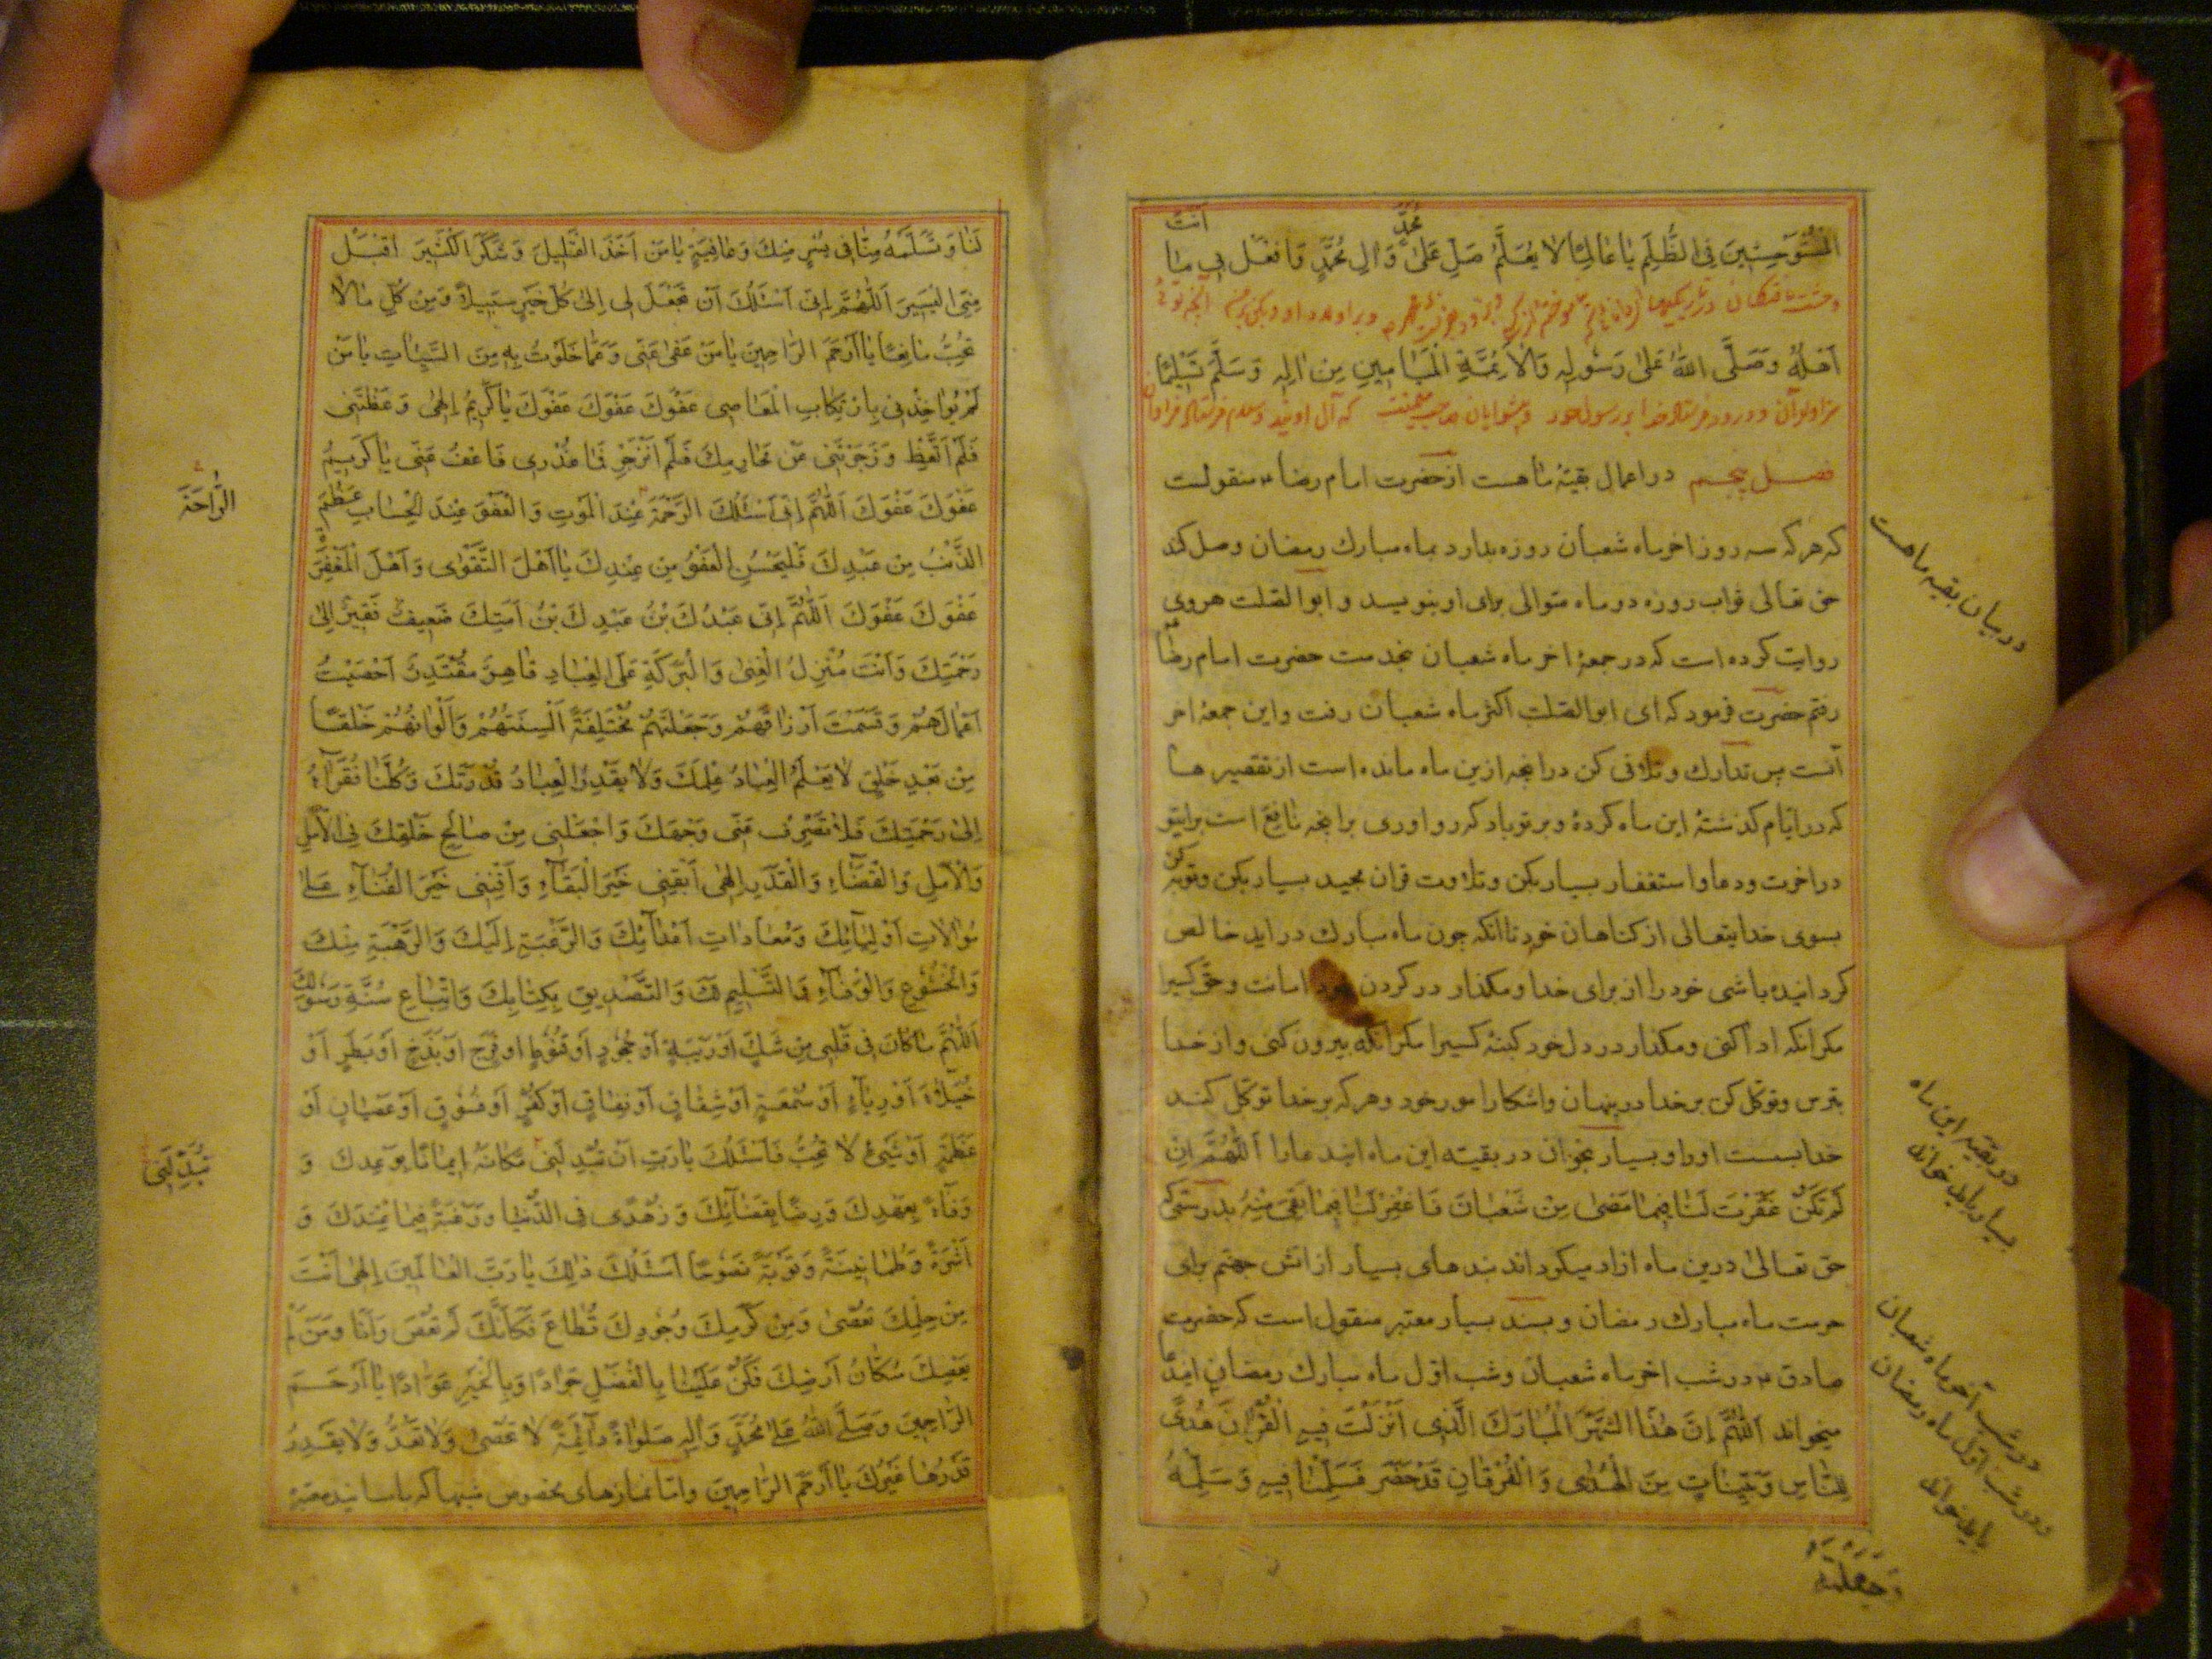 المُسْتَوْحِشِينَ فِي الظُّلَمِ يَا عَالِمًا لَا يُعَلَّمُ صَلِّ عَلَى مُحَمَّدٍ وَآلِ مُحَمَّدٍ وَافْعَلْ بِي مَا أَنْتَ
أَهْلُهُ وَصَلَّى اللهُ عَلَى رَسُولِهِ وَالْأَئِمَّةِ الْمَيَامِينِ مِنْ آلِهِ وَسَلَّمَ تَسْلِيمًا
سزاوار آن و درود فرستاد خدا بر رسول خود و پیشوایان صاحب میمنت که آل اویند و سلام فرستاد فراوان
فصل پنجم در اعمال بقیۀ ماهست از حضرت امام رضا منقولست
که هر که سه روز اخر ماه شعبان روزه بدارد بماه مبارک رمضان وصل کند
حق تعالی ثواب روزه دو ماه متوالی برای او بنویسد و ابوالصلت هروی
روایت کرده است که در جمعۀ اخر ماه شعبان بخدمت حضرت امام رضا
رفتم حضرت فرمود که ای ابوالصلت اکثر ماه شعبان رفت و این جمعۀ اخر
آنست پس تدارک و تلافی کن در انچه ازین ماه مانده است از تقصیرها
که در ایام گذشتۀ این ماه کردۀ و بر تو باد که رو اوری بر انچه نافع است برای تو
در اخرت و دعا و استغفار بسیار بکن و تلاوت قران مجید بسیار بکن و توبه کن
بسوی خدایتعالی از گناهان خود تا انکه چون ماه مبارک در اید خالص
گردانیده باشی خود را از برای خدا و مگذار در گردن خود امانت و حق کسیرا
مگر انکه ادا کنی و مگذار در دل خود کینۀ کسیرا مگر انکه بیرون کنی و از خدا
بترس و توکل کن بر خدا در پنهان و اشکارا امور خود و هر که بر خدا توکل کند
خدا بسست او را و بسیار بخوان در بقیۀ این ماه این دعا را اَللّٰهُمَّ اِنْ
لَمْ تَكُنْ غَفَرْتَ لَنَا فِيمَا مَضَى مِنْ شَعْبَانَ فَاغْفِرْ لَنَا فِيمَا بَقِيَ مِنْهُ بدرستیکه
حق تعالی درین ماه ازاد میگرداند بندهای بسیار از اتش جهنم برای
حرمت ماه مبارک رمضان و بسند بسیار معتبر منقول است که حضرت
صادق در شب اخر ماه شعبان و شب اول ماه مبارک رمضان این دعا
میخواند اَللّٰهُمَّ إِنَّ هٰذَا الشَّهْرَ الْمُبَارَكَ الَّذِي أُنْزِلَتْ فِيهِ الْقُرْآنُ هُدًى
لِلنَّاسِ وَبَيِّنَاتٍ مِنَ الْهُدَى وَالْفُرْقَانِ قَدْ حَضَرَ فَسَلِّمْنَا فِيهِ وَسَلِّمْهُ
در بیان بقیه ماهست
در بقیه این ماه
بسیار باید خواند
در شب آخر ماه شعبان
و در شب اول ماه رمضان
باید خواند
لَنَا وَتَسَلَّمْهُ مِنَّا فِي يُسْرٍ مِنْكَ وَعَافِيَةٍ يَا مَنْ أَخَذَ الْقَلِيلَ وَشَكَرَ الْكَثِيرَ اقْبَلْ
مِنِّي الْيَسِيرَ اَللّٰهُمَّ إِنِّي أَسْئَلُكَ أَنْ تَجْعَلَ لِي إِلَى كُلِّ خَيْرٍ سَبِيلًا وَمِنْ كُلِّ مَا لَا
تُحِبُّ مَانِعًا يَا أَرْحَمَ الرَّاحِمِينَ يَا مَنْ عَفَى عَنِّي وَعَمَّا خَلَوْتُ بِهِ مِنَ السَّيِّئَاتِ يَا مَنْ
لَمْ يُؤَاخِذْنِي بِارْتِكَابِ الْمَعَاصِي عَفْوَكَ عَفْوَكَ عَفْوَكَ يَا كَرِيمُ إِلٰهِي وَعَظْتَنِي
فَلَمْ أَتَّعِظْ وَزَجَرْتَنِي عَنْ مَحَارِمِكَ فَلَمْ أَنْزَجِرْ فَمَا عُذْرِي فَاعْفُ عَنِّي يَا كَرِيمُ
عَفْوَكَ عَفْوَكَ اَللّٰهُمَّ إِنِّي أَسْئَلُكَ الرَّحْمَةَ عِنْدَ الْمَوْتِ وَالْعَفْوَ عِنْدَ الْحِسَابِ عَظُمَ
الذَّنْبُ مِنْ عَبْدِكَ فَلْيَحْسُنِ الْعَفْوُ مِنْ عِنْدِكَ يَا أَهْلَ التَّقْوَى وَأَهْلَ الْمَغْفِرَةِ
عَفْوَكَ عَفْوَكَ اَللّٰهُمَّ إِنِّي عَبْدُكَ بْنُ عَبْدِكَ بْنُ أَمَتِكَ ضَعِيفٌ فَقِيرٌ إِلَى
رَحْمَتِكَ وَأَنْتَ مُنْزِلُ الْغِنَى وَالْبَرَكَةِ عَلَى الْعِبَادِ قَاهِرٌ مُقْتَدِرٌ أَحْصَيْتَ
أَعْمَالَهُمْ وَقَسَمْتَ أَرْزَاقَهُمْ وَجَعَلْتَهُمْ مُخْتَلِفَةً أَلْسِنَتُهُمْ وَأَلْوَانُهُمْ خَلْقًا
مِنْ بَعْدِ خَلْقٍ لَا يَعْلَمُ الْعِبَادُ عِلْمَكَ وَلَا يَقْدِرُ الْعِبَادُ قَدْرَكَ وَكُلُّنَا فُقَرَاءُ
إِلَى رَحْمَتِكَ فَلَا تَصْرِفْ عَنِّي وَجْهَكَ وَاجْعَلْنِي مِنْ صَالِحِ خَلْقِكَ فِي الْعَمَلِ
وَالْأَمَلِ وَالْقَضَاءِ وَالْقَدَرِ إِلٰهِي أَبْقِنِي خَيْرَ الْبَقَاءِ وَأَفْنِنِي خَيْرَ الْفَنَاءِ عَلَى
مُوَالَاتِ أَوْلِيَائِكَ وَمُعَادَاتِ أَعْدَائِكَ وَالرَّغْبَةِ إِلَيْكَ وَالرَّهْبَةِ مِنْكَ
وَالْخُشُوعِ وَالْوَفَاءِ وَالتَّسْلِيمِ لَكَ وَالتَّصْدِيقِ بِكِتَابِكَ وَاتِّبَاعِ سُنَّةِ رَسُولِكَ
اَللّٰهُمَّ مَا كَانَ فِي قَلْبِي مِنْ شَكٍّ أَوْ رِيبَةٍ أَوْ جُحُودٍ أَوْ قُنُوطٍ أَوْ فَرَحٍ أَوْ بَذَخٍ أَوْ بَطَرٍ أَوْ
خُيَلَاءَ أَوْ رِيَاءٍ أَوْ سُمْعَةٍ أَوْ شِقَاقٍ أَوْ نِفَاقٍ أَوْ كُفْرٍ أَوْ فُسُوقٍ أَوْ عِصْيَانٍ أَوْ
عَظَمَةٍ أَوْ شَيْءٍ لَا تُحِبُّ فَأَسْئَلُكَ يَا رَبِّ أَنْ تُبَدِّلَنِي مَكَانَهُ إِيمَانًا بِوَعْدِكَ وَ
وَفَاءً بِعَهْدِكَ وَرِضًا بِقَضَائِكَ وَزُهْدًا فِي الدُّنْيَا وَرَغْبَةً فِيمَا عِنْدَكَ وَ
أَثَرَةً وَطُمَأْنِينَةً وَتَوْبَةً نَصُوحًا أَسْئَلُكَ ذٰلِكَ يَا رَبَّ الْعَالَمِينَ إِلٰهِي أَنْتَ
مِنْ حِلْمِكَ تُعْصَى وَمِنْ كَرَمِكَ وَجُودِكَ تُطَاعُ فَكَأَنَّكَ لَمْ تُعْصَ وَأَنَا وَمَنْ لَمْ
يَعْصِكَ سُكَّانُ أَرْضِكَ فَكُنْ عَلَيْنَا بِالْفَضْلِ جَوَادًا وَبِالْخَيْرِ عَوَّادًا يَا أَرْحَمَ
الرَّاحِمِينَ وَصَلَّى اللهُ عَلَى مُحَمَّدٍ وَآلِهِ صَلَوَاةً دَائِمَةً لَا تُحْصَى وَلَا تُعَدُّ وَلَا يَقْدِرُ
قَدْرَهَا غَيْرُكَ يَا أَرْحَمَ الرَّاحِمِينَ واما نمازهای مخصوص شبها که باسانید معتبره
الرَّاحَةَ
تُبَدِّلَنِي